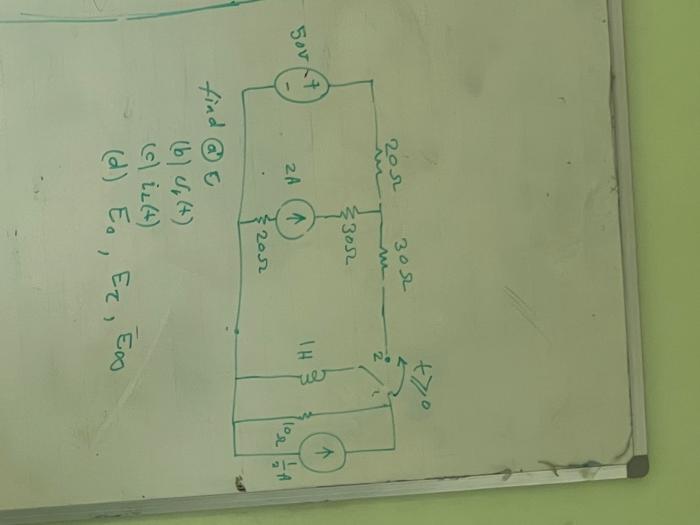 50v
+
-
20Ω
30Ω
2A
30Ω
20Ω
2
t≥0
1
1H
10Ω
1/2 A
find (a) τ
(b) v₁(t)
(c) i_L(t)
(d) E₀, E_τ, E∞